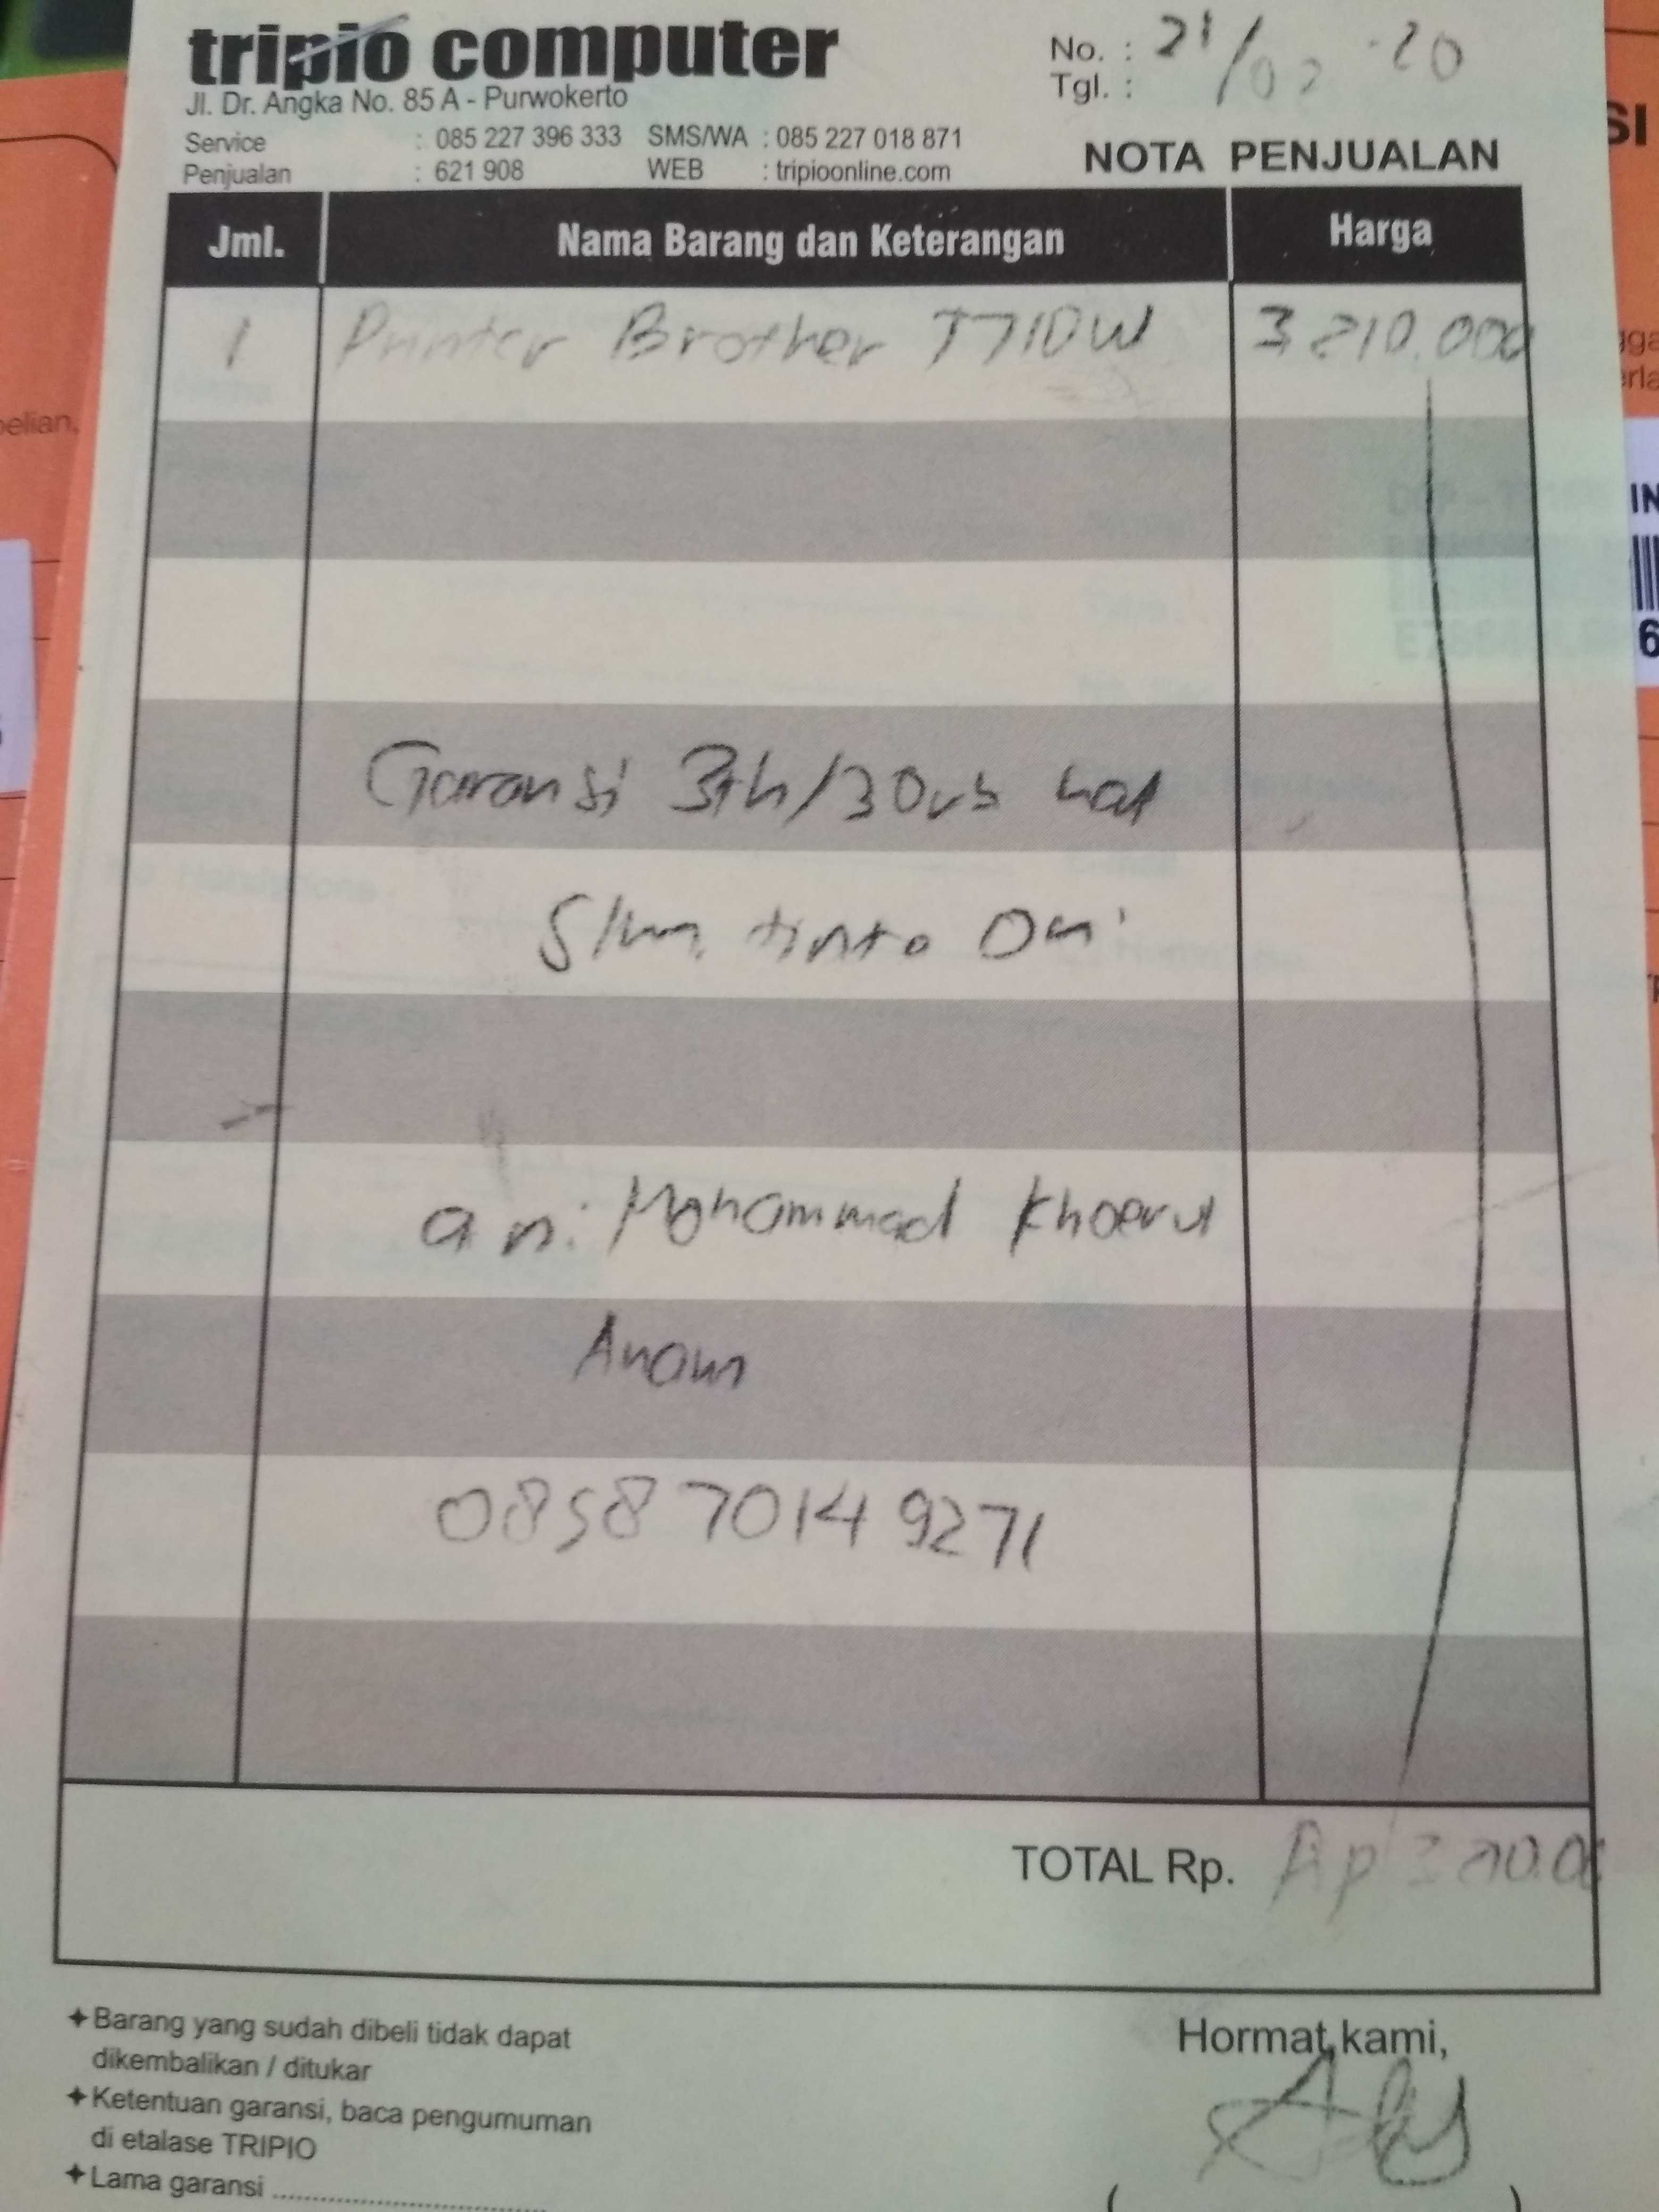 tripio computer
Jl. Dr. Angka No. 85 A - Purwokerto
Service : 085 227 396 333 SMS/WA : 085 227 018 871
Penjualan : 621 908 WEB : tripioonline.com
No. : 21/02 20
Tgl. :
NOTA PENJUALAN
Jml. Nama Barang dan Keterangan Harga
1 Printer Brother T710W 3 210.000
Garansi 3th/30rb hal
tinta Ori
a n: Mohammad Khoerul
Anam
0858 7014 9271
TOTAL Rp. Rp
Barang yang sudah dibeli tidak dapat
dikembalikan / ditukar
Ketentuan garansi, baca pengumuman
di etalase TRIPIO
Lama garansi
Hormat kami,
( )
SI
elian,
IN
6